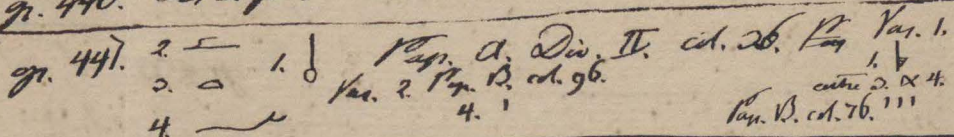 gr. 440.
gr. 441. 2. 1. Pap. A. Div. II. col. 26. Var. 1.
3. Var. 2. Pap. B. col. 96. 1.
4. 4. entre 3. & 4.
Pap. B. col. 76.